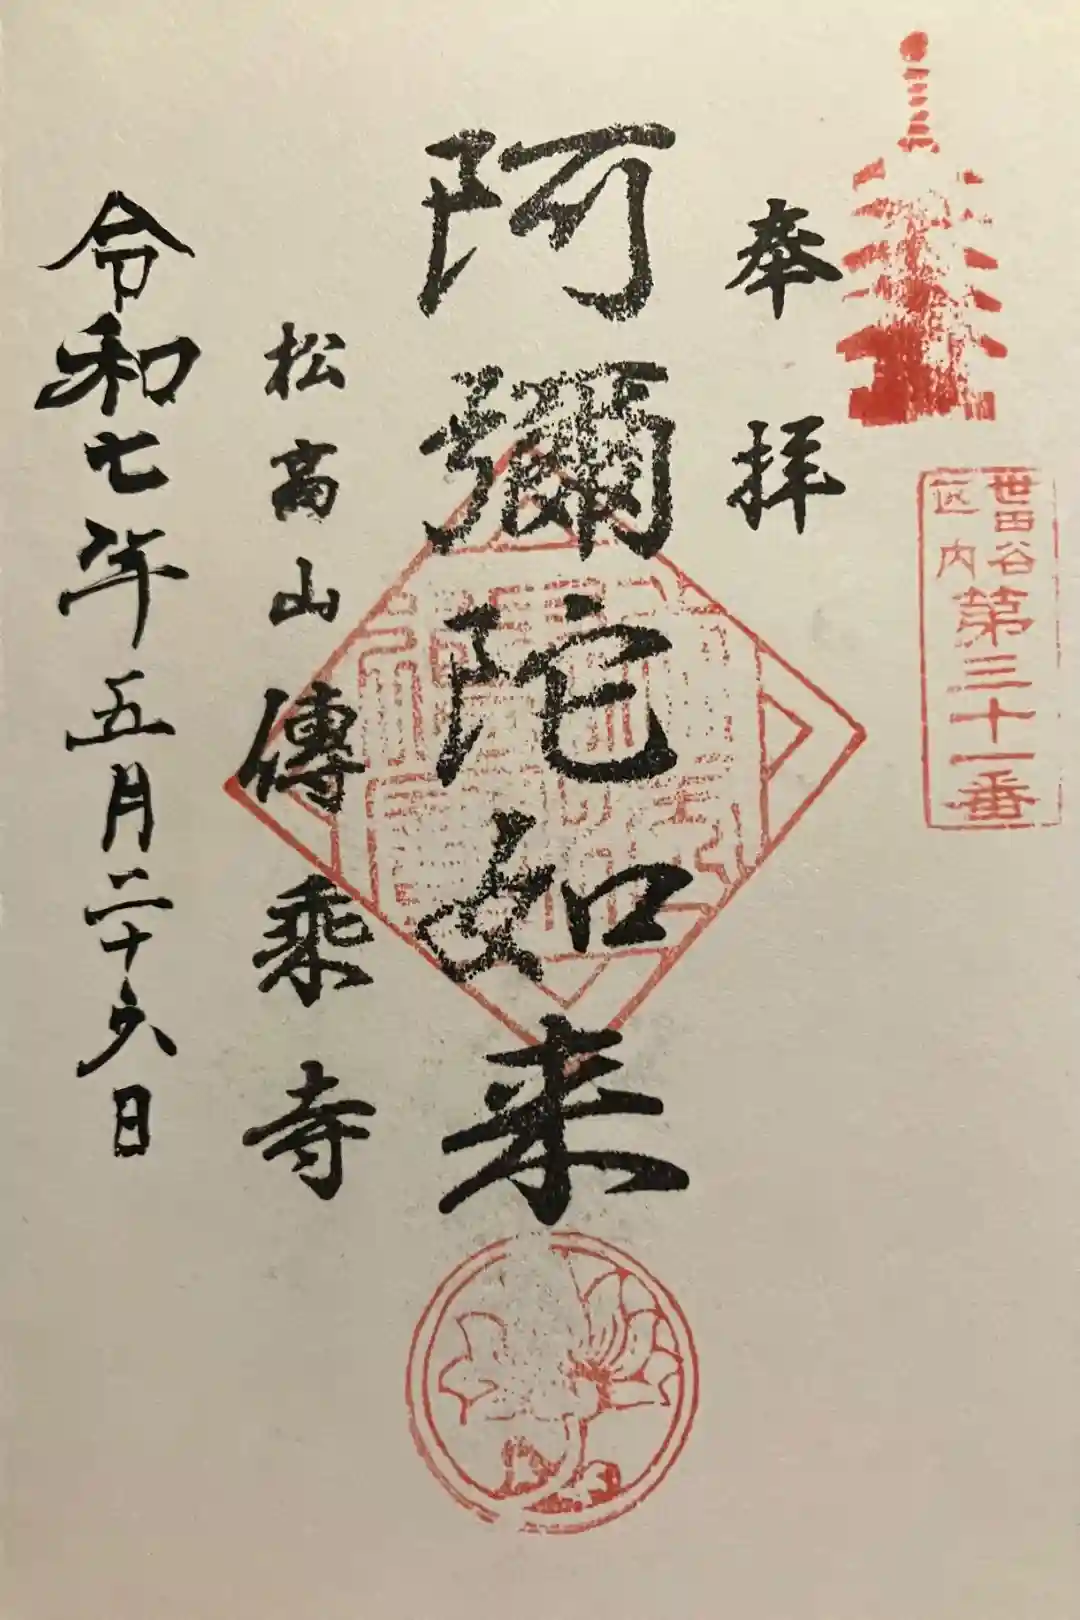 世田谷
区内
第三十一番
奉拝
阿彌陀如来
松高山傳乗寺
令和七年五月二十六日